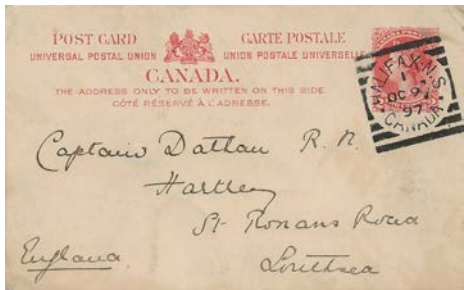 POST CARD CARTE POSTALE
UNIVERSAL POSTAL UNION UNION POSTALE UNIVERSELLE
CANADA.
THE ADDRESS ONLY TO BE WRITTEN ON THIS SIDE.
CÔTÉ RÉSERVÉ À L'ADRESSE.
HALIFAX·N.S.
1
OC 9
97
CANADA
Captain Dathan R. N.
Hartley
St Ronans Road
Southsea
England